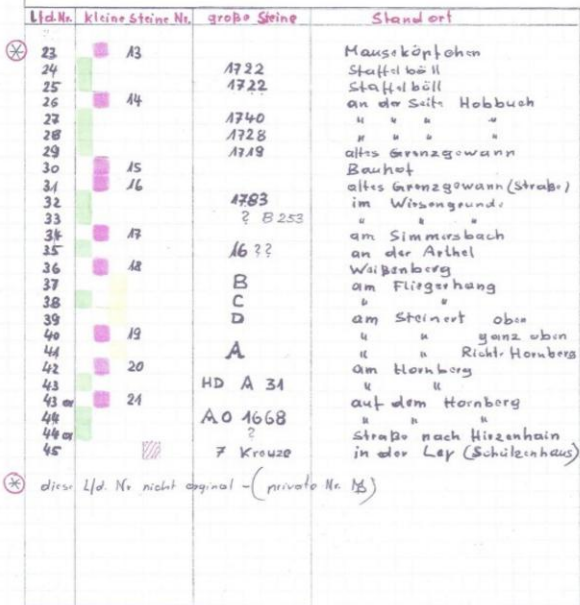 Lfd.Nr. kleine Steine Nr. große Steine Standort
23 13 Mausköpfchen
24 1722 Staffelböll
25 1722 Staffelböll
26 14 an der Seite Hobbuch
27 1740 " " " "
28 1728 " " " "
29 1719 altes Grenzgewann
30 15 Bauhof
31 16 altes Grenzgewann (Straße)
32 1783 im Wiesengrunde
33 ? B 253 " " "
34 17 am Simmersbach
35 16 ?? an der Arthel
36 18 Weißenberg
37 B am Fliegerhang
38 C " "
39 D am Steinert oben
40 19 " " ganz oben
41 A " " Richt. Hornberg
42 20 am Hornberg
43 HD A 31 " "
43 a 21 auf dem Hornberg
44 AO 1668 " " "
44 a ? Straße nach Hirzenhain
45 7 Kreuze in der Ley (Schützenhaus)
diese Lfd. Nr nicht orginal - (private Nr.